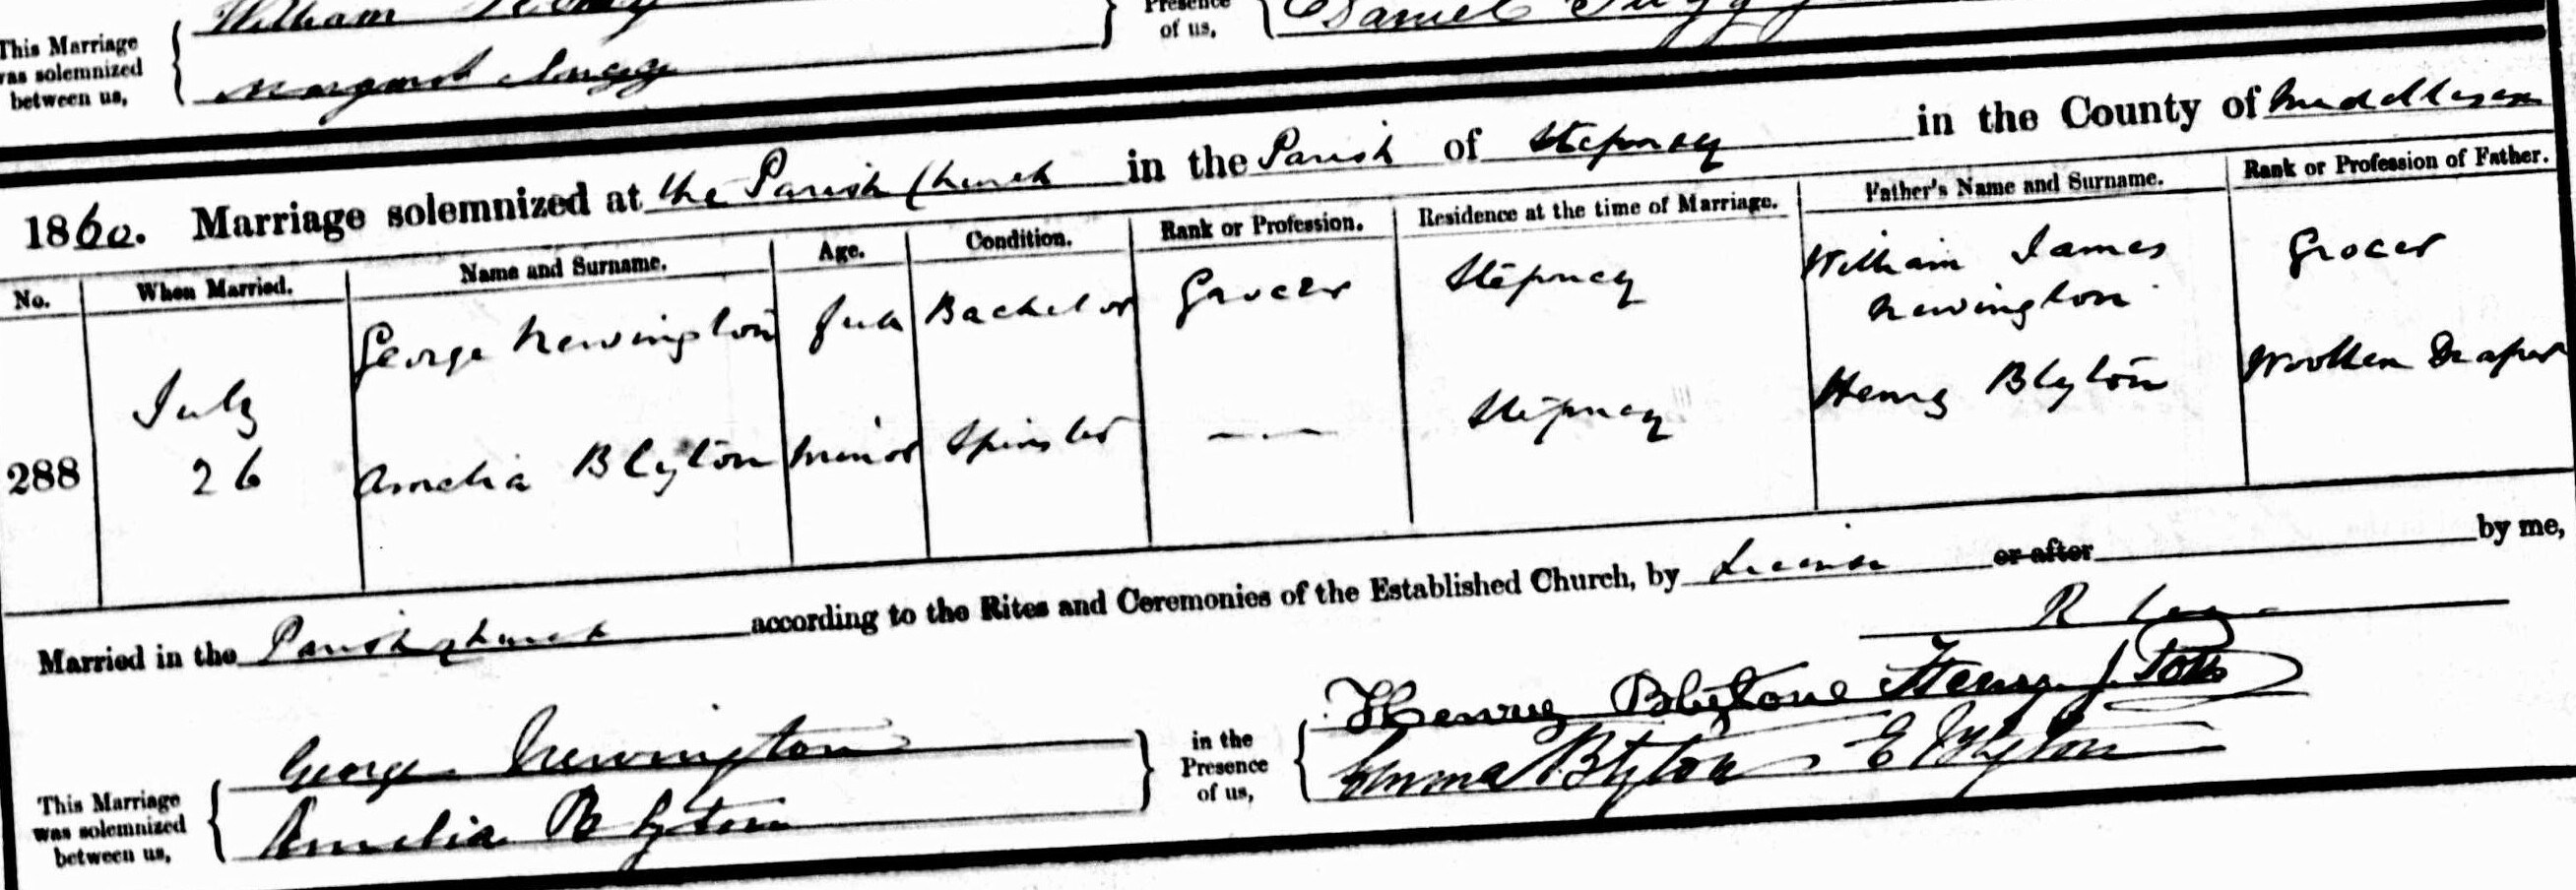 William
This Marriage
was solemnized
between us,
Margaret
Presence
of us,
Daniel
1860. Marriage solemnized at the Parish Church in the Parish of Stepney in the County of Middlesex
No. When Married. Name and Surname. Age. Condition. Rank or Profession. Residence at the time of Marriage. Father's Name and Surname. Rank or Profession of Father.
288 July 26
George Newington full Bachelor Grocer Stepney William James Newington Grocer
Amelia Blyton minor Spinster — Stepney Henry Blyton Woollen Draper
Married in the Parish Church according to the Rites and Ceremonies of the Established Church, by Licence or after by me,
R Lee
This Marriage
was solemnized
between us,
George Newington
Amelia Blyton
in the
Presence
of us,
Henry Blytone Henry J.
Emma Blyton E Blyton